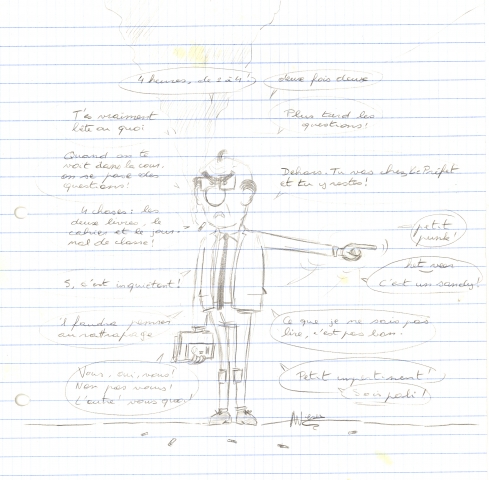 4 heures, de 2 à 4!
deux fois deux
T'es vraiment
bête ou quoi
Plus tard les
questions!
Quand on te
voit dans la cour
on se pose des
questions!
Dehors. Tu vas chez Le Préfet
et tu y restes!
4 choses: les
deux livres, le
cahier et le jour-
nal de classe!
petit
5, c'est inquiétant!
C'est un
il faudra penser
au rattrapage
Ce que je ne sais pas
lire, c'est pas bon.
Vous, oui, vous!
Non pas vous!
L'autre vous quoi!
Petit impertinent!
Sois poli!